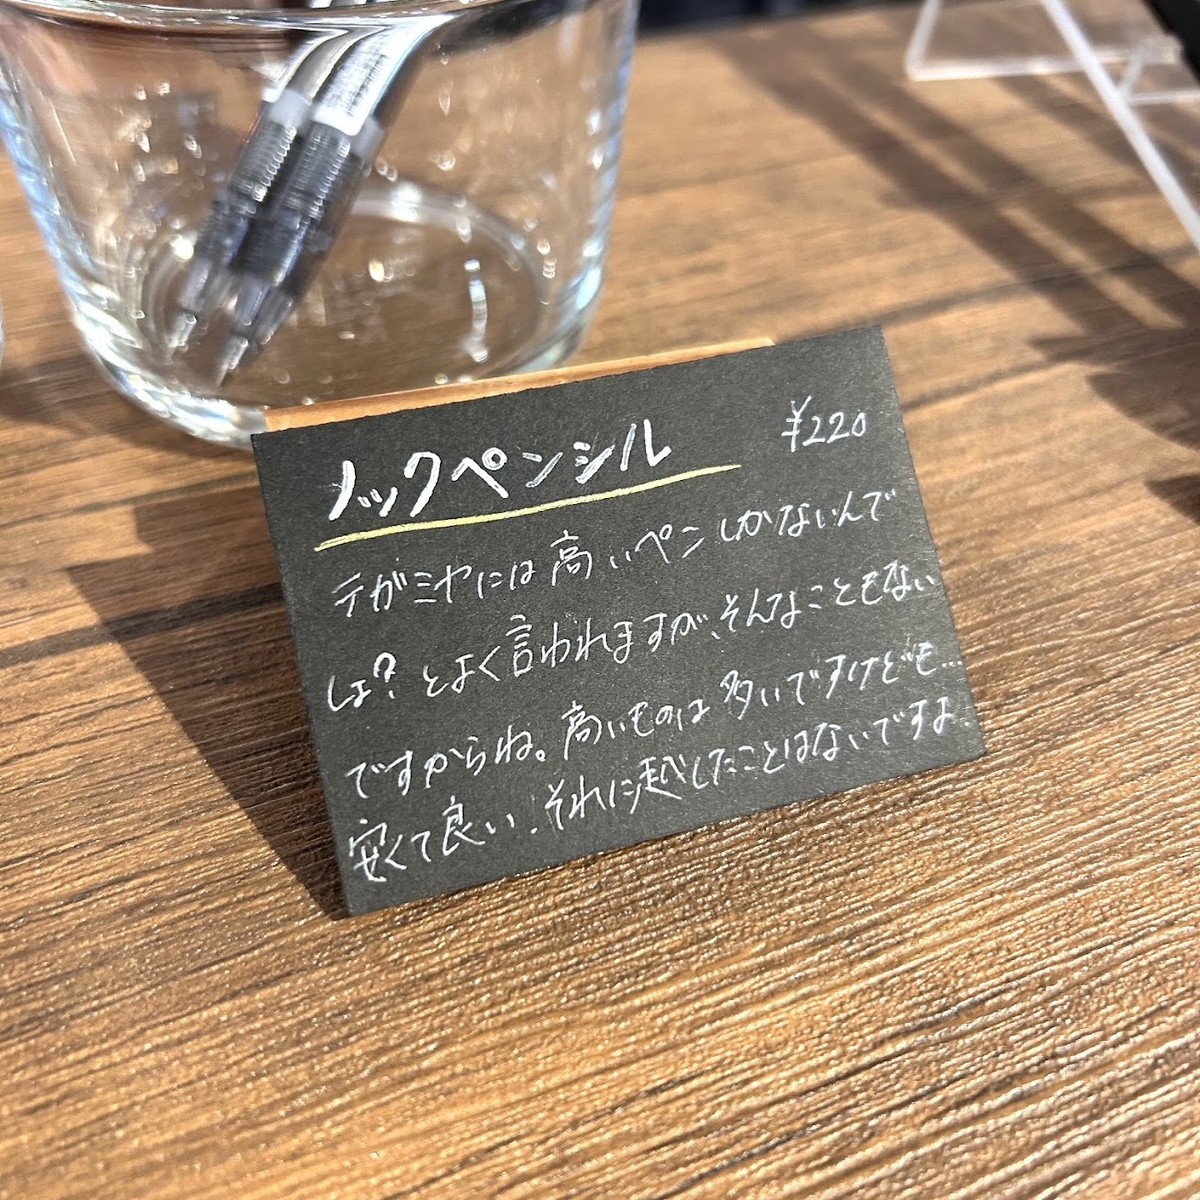 ノックペンシル ¥220
テガミヤには高いペンしかないんで
しょ?とよく言われますが、そんなこともない
ですからね。高いものは多いですけども…
安くて良い、それに越したことはないですよ。